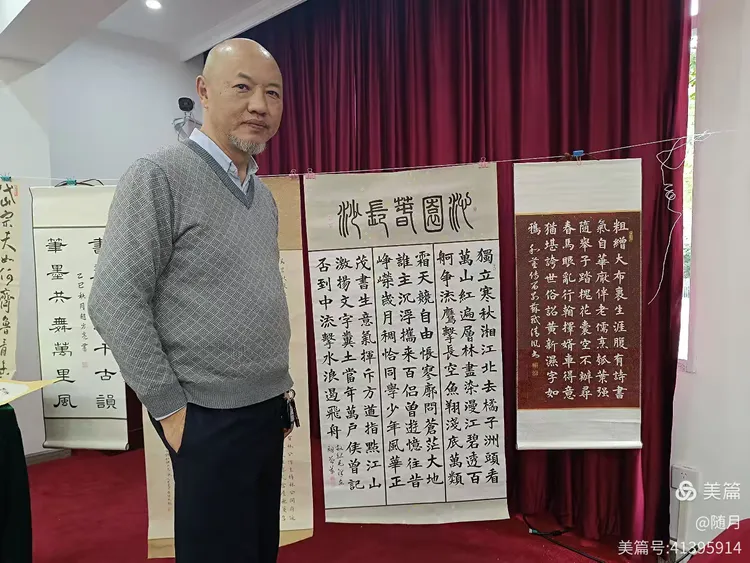 岱宗夫如何齊魯青未
千古韻
筆墨共舞萬里風
沁園春長沙
獨立寒秋湘江北去橘子洲頭看
萬山紅遍層林盡染漫江碧透百
舸争流鷹擊長空魚翔淺底萬類
霜天競自由悵寥廓問蒼茫大地
誰主沉浮攜来百侶曾遊憶往昔
峥嶸歲月稠恰同學少年風華正
茂書生意氣揮斥方遒指點江山
激揚文字糞土當年萬户侯曾記
否到中流擊水浪遏飛舟
粗繒大布裹生涯腹有詩書
氣自華厭伴老儒烹瓠葉强
隨舉子踏槐花囊空不辦尋
春馬眼亂行擇婿車得意
猶堪誇世俗詔黄新濕字如
鴉
美篇
@随月
美篇号:41395914